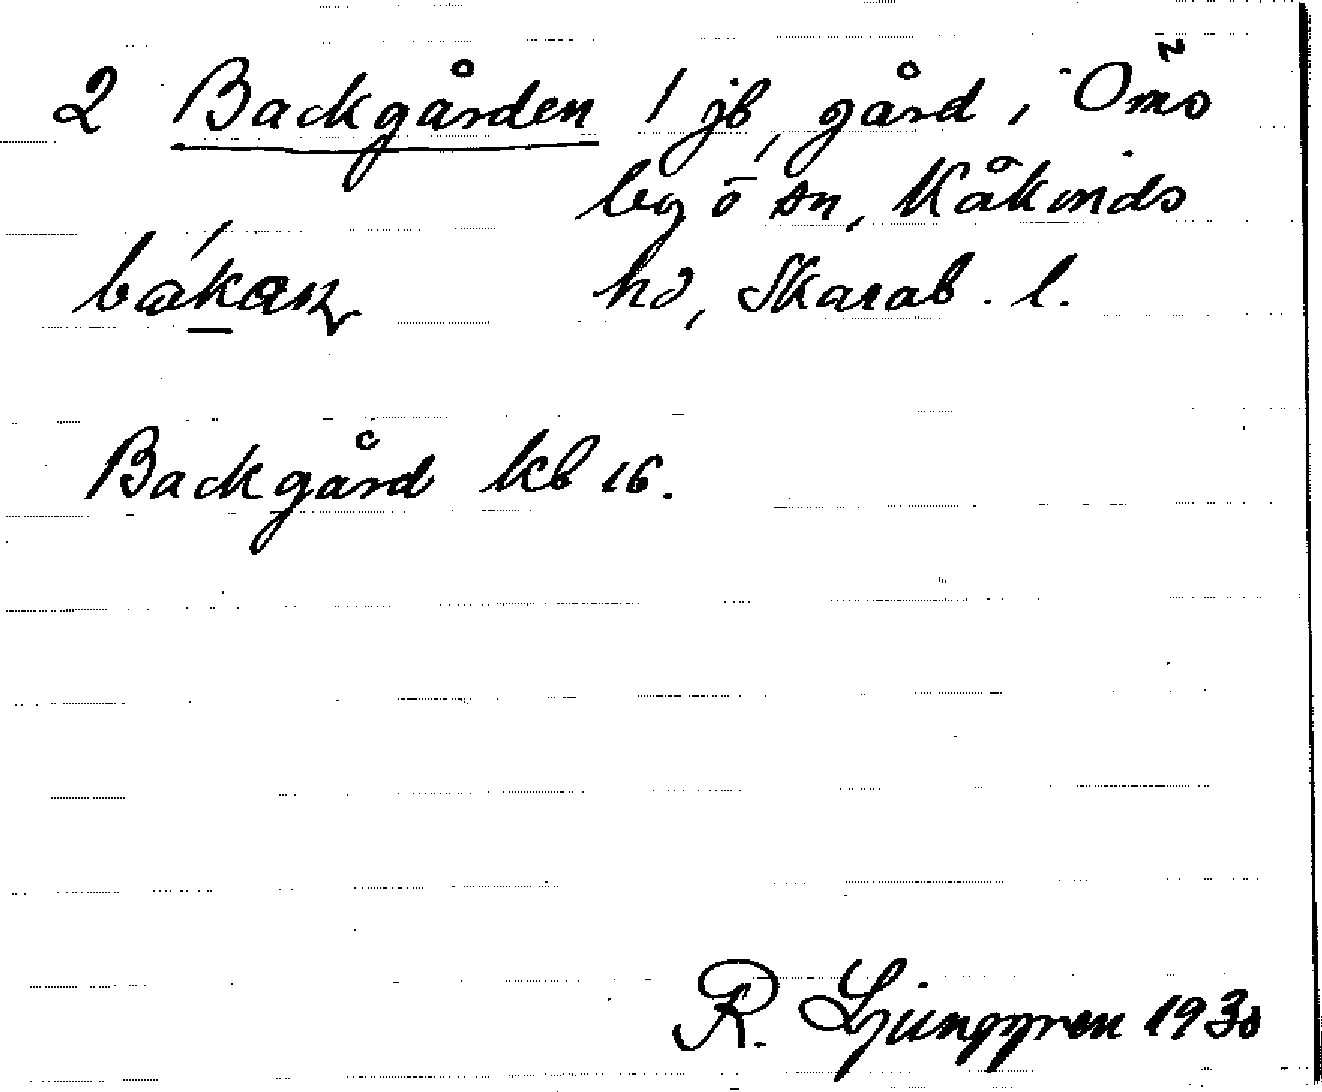 2 Backgården 1 jb, gård, i Öms
by i Ö sn, Kåkinds
bakan hd, Skarab. l.
Backgård kb 16.
R. Ljunggren 1930